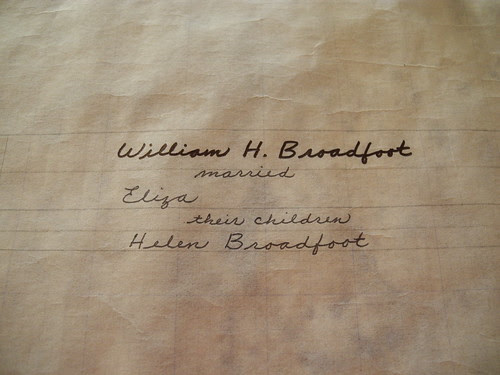 William H. Broadfoot
married
Eliza
their children
Helen Broadfoot